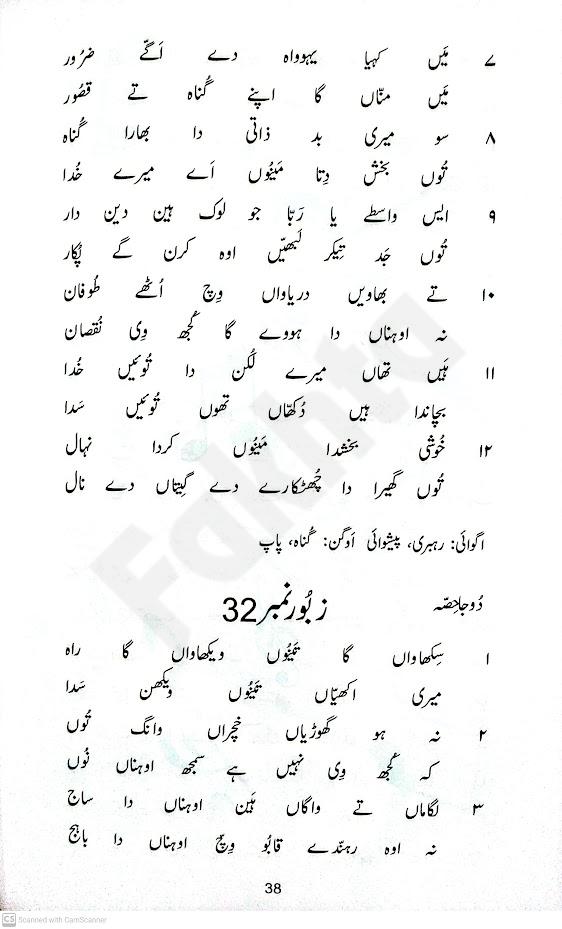 ۷ مَیں کہیا یہوواہ دے اَگّے ضرُور
مَیں منّاں گا اپنے گُناہ تے قصُور
۸ سو میری بد ذاتی دا بھارا گُناہ
تُوں بخش دِتا مَینُوں اَے میرے خُدا
۹ ایس واسطے یا رَبّا جو لوک ہین دین دار
تُوں جَد تِیکر لَبھیّں اوہ کرن گے پُکار
۱۰ تے بھاویں دریاواں وِچ اُٹھے طُوفان
نہ اوہناں دا ہووے گا کُجھ وِی نُقصان
۱۱ ہَیں تھاں میرے لُکن دا تُوئیں خُدا
بچاندا ہیں دُکھّاں تھوں تُوئیں سَدا
۱۲ خُوشی بخشدا مَینُوں کردا نہال
تُوں گھیرا دا چُھٹکارے دے گیتاں دے نال
اگوائی: رہبری، پیشوائی اَوگن: گُناہ، پاپ
دُوجا حِصّہ زبُور نمبر 32
۱ سِکھاواں گا تَینُوں ویکھاواں گا راہ
میری اکھیّاں تَینُوں ویکھن سَدا
۲ نہ ہو گھوڑیاں خچراں وانگ تُوں
کہ کُجھ وِی نہیں ہے سمجھ اوہناں نُوں
۳ لگاماں تے واگاں ہَین اوہناں دا ساج
نہ اوہ رہندے قابُو وِچّ اوہناں دا باہج
38
Fakhta
CS Scanned with CamScanner